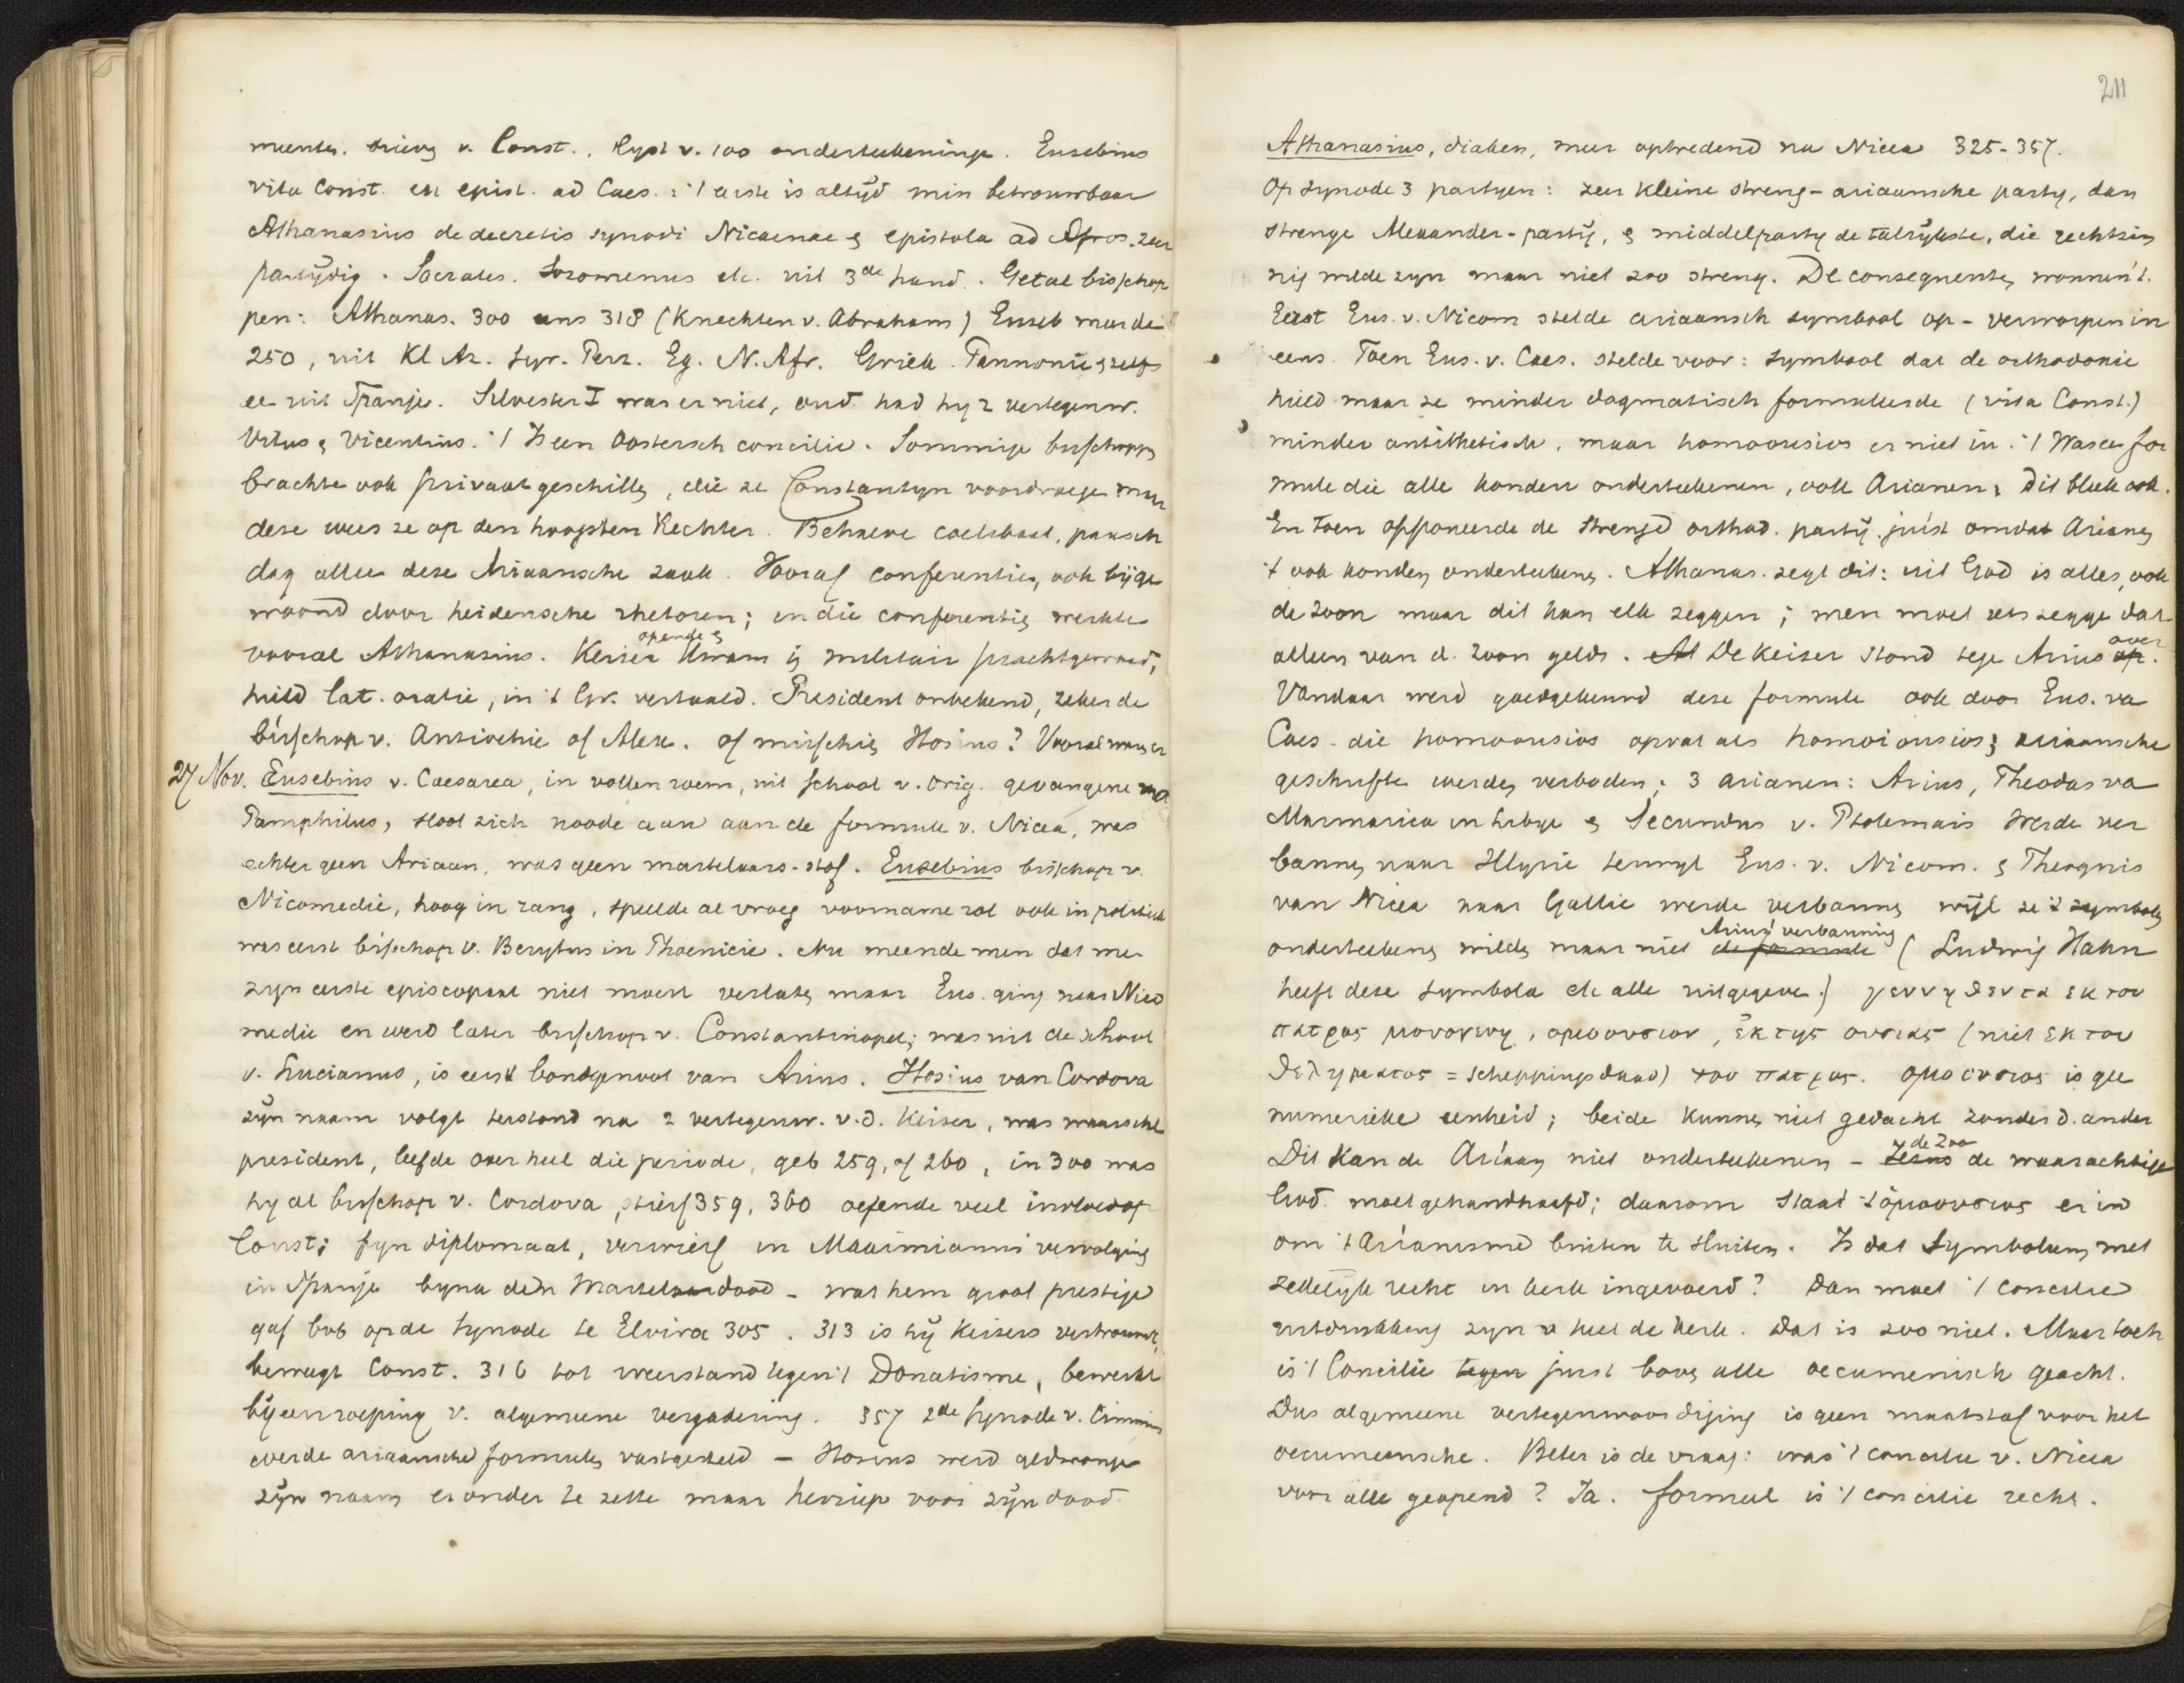 menten. brieven v. Const., lyst v. 100 onderteekeninge. Eusebius
vita Const. en epist. ad Caes. : 't eerste is altijd min betrouwbaar
Athanasius de decretis synodi Nicaenae & epistola ad Afros. zeer
partijdig. Socrates. Sozomenus etc. uit 3de hand. Getal bisschop
pen: Athanas. 300 ans 318 (Knechten v. Abraham) Euseb meerde
250, uit Kl Az. Syr. Perz. Eg. N. Afr. Griek. Pannonie & zelfs
ee uit Spanje. Silvester I was er niet, oud had hy 2 vertegenw.
Vitus & Vicentius. 't Is een Oostersch concilie. Sommige bisschoppen
brachte ook privaat geschillen, die ze Constantyn voordroege maar
deze wees ze op den hoogsten Rechter. Behalve coelibaat, paasch
dag alleen deze Ariaansche zaak. Vooraf conferenties, ook bijge
woond door heidensche rhetoren; in die conferenties werkte
vooral Athanasius. Keizer opende & kwam in militair prachtgewaad,
hield lat. oratie, in 't Gr. vertaald. President onbekend, zeker de
bisschop v. Antiochie of Alex. of misschien Hosius? Vooral was er
27 Nov. Eusebius v. Caesarea, in vollen roem, uit school v. Orig. gevangene
Pamphilus, sloot zich noode aan aan de formule v. Nicea, was
echter geen Ariaan, was geen martelaars-stof. Eusebius bisschop v.
Nicomedie, hoog in rang, speelde al vroeg voorname rol ook in politiek
was eerst bisschop v. Berytus in Phoenicie. Nu meende men dat me
zyn eerste episcopaat niet moest verlaten maar Eus. ging naar Nico
medie en werd later bisschop v. Constantinopel; was uit de school
v. Lucianus, is eerst bondgenoot van Arius. Hosius van Cordova
zijn naam volgt terstond na 2 vertegenw. v.d. Keizer, was waarschl
president, leefde over heel die periode, geb 259, of 260, in 300 was
hy al bisschop v. Cordova, stierf 359, 360 oefende veel invloed op
Const; fyn diplomaat, verwierf in Maximianus vervolging
in Spanje byna den Marteldood - wat hem groot prestige
gaf ook op de Synode te Elvira 305. 313 is hij Keizers vertrouwde,
beweegt Const. 316 tot weerstand tegen 't Donatisme, bewerkt
bijeenroeping v. algemeene vergadering. 357 2de Synode v. Sirmium
werde ariaansche formules vastgesteld - Hosius werd gedwonge
zijn naam er onder te zette maar herriep voor zijn dood.
211
Athanasius, diaken, meer optredend na Nicea 325-357.
Op synode 3 partyen: zeer kleine streng-ariaansche party, dan
strenge Alexander-partij, & middelparty de talrijkste, die rechtzin
nig wilde zyn maar niet zoo streng. De consequenten wonnen 't.
Eerst Eus. v. Nicom stelde ariaansch symbool op - verworpen in
eens. Toen Eus. v. Caes. stelde voor: symbool dat de orthodoxie
hield maar ze minder dogmatisch formuleerde (vita Const.)
minder antithetisch, maar homoousios er niet in. 't Was een for
mule die alle konden onderteekenen, ook Arianen; dit bleek ook.
En toen opponeerde de strenge orthod. partij juist omdat Arianen
't ook konden onderteekenen. Athanas. zegt dit: uit God is alles, ook
de zoon maar dit kan elk zeggen; men moet iets zegge dat
alleen van d. zoon geldt. Al De Keizer stond tege Arius op over.
Vandaar werd goedgekeurd deze formule ook door Eus. va
Caes. die homoousios opvat als homoiousios; ariaansche
geschrifte werden verboden; 3 arianen: Arius, Theodas va
Marmarica in Libye & Secundus v. Ptolemais werde ver
bannen naar Illyrie terwyl Eus. v. Nicom. & Theognis
van Nicea naar Gallie werde verbannen wijl ze 't symbool
onderteekenen wilden maar niet de formule Arius' verbanning (Ludwig Hahn
heeft deze symbola etc alle uitgegeve.) γεννηθεντα εκ του
πατρος μονογενη, ομοουσιον, εκ της ουσιας (niet εκ του
θεληματος = scheppingsdaad) του πατρος. ομοουσιος is gee
numerieke eenheid; beide kunnen niet gedacht zonder d. ander
Dit kan de Ariaan niet onderteekenen - Jezus de Zoo de waarachtige
God moet gehandhaafd; daarom staat 't ὁμοουσιος er in
om 't Arianisme buiten te sluiten. Is dat symbolum met
zedelijk recht in kerk ingevoerd? Dan moet 't concilie
uitdrukking zyn v heel de kerk. Dat is zoo niet. Maar toch
is 't Concilie tegen juist boven alle oecumenisch geacht.
Dus algemeene vertegenwoordiging is geen maatstaf voor het
oecumenische. Beter is de vraag: was 't concilie v. Nicea
voor alle geopend? Ja. formeel is 't concilie recht.